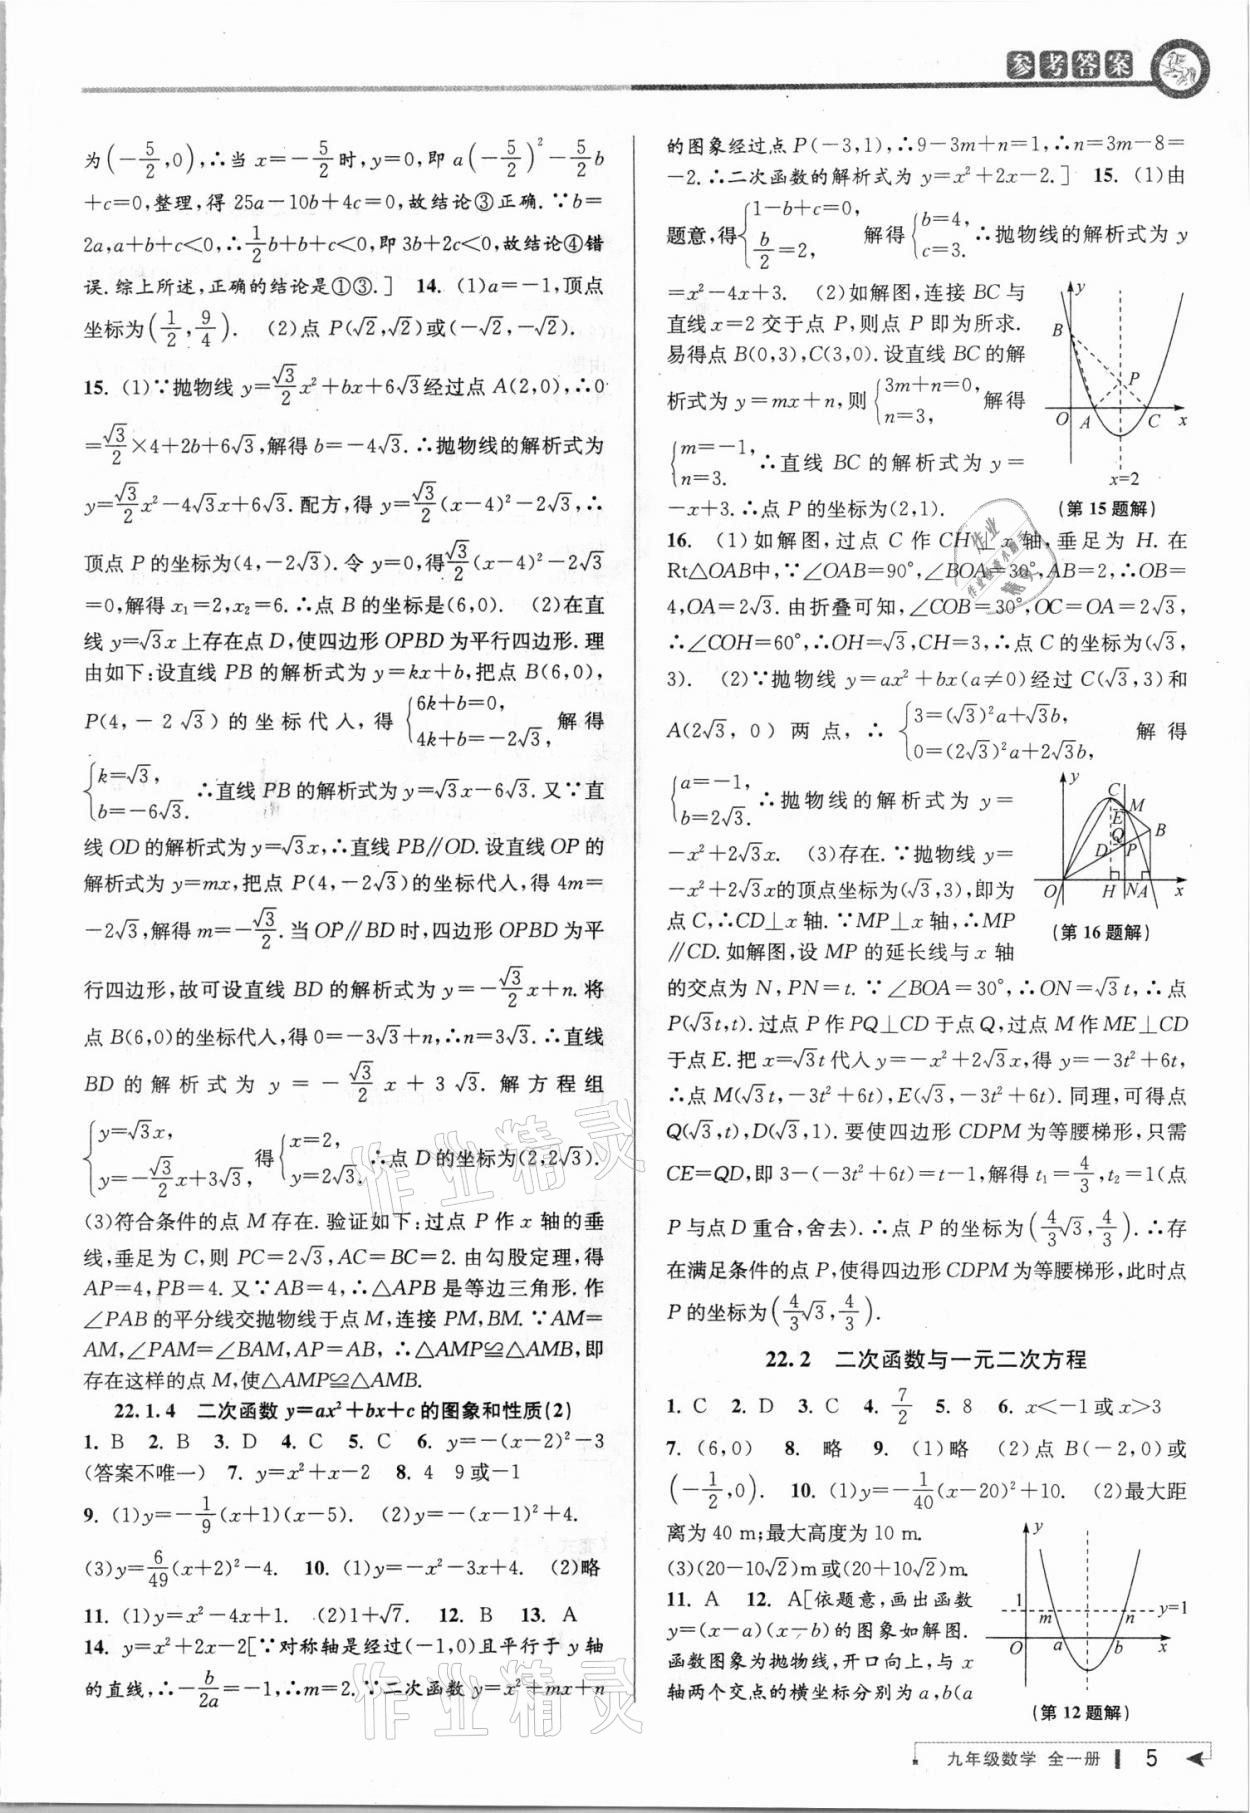 参考答案
为(-5/2,0),∴当 x=-5/2时,y=0,即 a(-5/2)²-5/2b
+c=0,整理,得 25a-10b+4c=0,故结论③正确.∵b=
2a,a+b+c<0,∴1/2b+b+c<0,即 3b+2c<0,故结论④错
误.综上所述,正确的结论是①③.] 14. (1)a=-1,顶点
坐标为(1/2,9/4). (2)点 P(√2,√2)或(-√2,-√2).
15. (1)∵抛物线 y=√3/2x²+bx+6√3经过点 A(2,0),∴0
=√3/2×4+2b+6√3,解得 b=-4√3.∴抛物线的解析式为
y=√3/2x²-4√3x+6√3.配方,得 y=√3/2(x-4)²-2√3,∴
顶点 P 的坐标为(4,-2√3).令 y=0,得√3/2(x-4)²-2√3
=0,解得 x₁=2,x₂=6.∴点 B 的坐标是(6,0). (2)在直
线 y=√3x 上存在点 D,使四边形 OPBD 为平行四边形.理
由如下:设直线 PB 的解析式为 y=kx+b,把点 B(6,0),
P(4,-2√3)的坐标代入,得{6k+b=0, 4k+b=-2√3, 解得
{k=√3, b=-6√3. ∴直线 PB 的解析式为 y=√3x-6√3.又∵直
线 OD 的解析式为 y=√3x,∴直线 PB∥OD.设直线 OP 的
解析式为 y=mx,把点 P(4,-2√3)的坐标代入,得 4m=
-2√3,解得 m=-√3/2.当 OP∥BD 时,四边形 OPBD 为平
行四边形,故可设直线 BD 的解析式为 y=-√3/2x+n.将
点 B(6,0)的坐标代入,得 0=-3√3+n,∴n=3√3.∴直线
BD 的解析式为 y=-√3/2x+3√3.解方程组
{y=√3x, y=-√3/2x+3√3, 得{x=2, y=2√3. ∴点 D 的坐标为(2,2√3).
(3)符合条件的点 M 存在.验证如下:过点 P 作 x 轴的垂
线,垂足为 C,则 PC=2√3,AC=BC=2.由勾股定理,得
AP=4,PB=4.又∵AB=4,∴△APB 是等边三角形.作
∠PAB 的平分线交抛物线于点 M,连接 PM,BM.∵AM=
AM,∠PAM=∠BAM,AP=AB,∴△AMP≌△AMB,即
存在这样的点 M,使△AMP≌△AMB.
22.1.4 二次函数 y=ax²+bx+c 的图象和性质(2)
1. B 2. B 3. D 4. C 5. C 6. y=-(x-2)²-3
(答案不唯一) 7. y=x²+x-2 8. 4 9或-1
9. (1)y=-1/9(x+1)(x-5). (2)y=-(x-1)²+4.
(3)y=6/49(x+2)²-4. 10. (1)y=-x²-3x+4. (2)略
11. (1)y=x²-4x+1. (2)1+√7. 12. B 13. A
14. y=x²+2x-2[∵对称轴是经过(-1,0)且平行于 y 轴
的直线,∴-b/2a=-1,∴m=2.∵二次函数 y=x²+mx+n
的图象经过点 P(-3,1),∴9-3m+n=1,∴n=3m-8=
-2.∴二次函数的解析式为 y=x²+2x-2.] 15. (1)由
题意,得{1-b+c=0, b/2=2, 解得{b=4, c=3. ∴抛物线的解析式为 y
=x²-4x+3. (2)如解图,连接 BC 与
直线 x=2 交于点 P,则点 P 即为所求.
易得点 B(0,3),C(3,0).设直线 BC 的解
析式为 y=mx+n,则{3m+n=0, n=3, 解得
{m=-1, n=3. ∴直线 BC 的解析式为 y=
-x+3.∴点 P 的坐标为(2,1).
y
B
P
O A C x
x=2
(第15题解)
16. (1)如解图,过点 C 作 CH⊥x 轴,垂足为 H.在
Rt△OAB中,∵∠OAB=90°,∠BOA=30°,AB=2,∴OB=
4,OA=2√3.由折叠可知,∠COB=30°,OC=OA=2√3,
∴∠COH=60°,∴OH=√3,CH=3,∴点 C 的坐标为(√3,
3). (2)∵抛物线 y=ax²+bx(a≠0)经过 C(√3,3)和
A(2√3,0)两点,∴{3=(√3)²a+√3b, 0=(2√3)²a+2√3b, 解得
{a=-1, b=2√3. ∴抛物线的解析式为 y=
-x²+2√3x. (3)存在.∵抛物线 y=
-x²+2√3x的顶点坐标为(√3,3),即为
点 C,∴CD⊥x 轴.∵MP⊥x 轴,∴MP
∥CD.如解图,设 MP 的延长线与 x 轴
y
C
M
E
Q B
D P
O H N A x
(第16题解)
的交点为 N,PN=t.∵∠BOA=30°,∴ON=√3t,∴点
P(√3t,t).过点 P 作 PQ⊥CD 于点 Q,过点 M 作 ME⊥CD
于点 E.把 x=√3t 代入 y=-x²+2√3x,得 y=-3t²+6t,
∴点 M(√3t,-3t²+6t),E(√3,-3t²+6t).同理,可得点
Q(√3,t),D(√3,1).要使四边形 CDPM 为等腰梯形,只需
CE=QD,即 3-(-3t²+6t)=t-1,解得 t₁=4/3,t₂=1(点
P 与点 D 重合,舍去).∴点 P 的坐标为(4/3√3,4/3).∴存
在满足条件的点 P,使得四边形 CDPM 为等腰梯形,此时点
P 的坐标为(4/3√3,4/3).
22.2 二次函数与一元二次方程
1. C 2. D 3. C 4. 7/2 5. 8 6. x<-1 或 x>3
7. (6,0) 8. 略 9. (1)略 (2)点 B(-2,0)或
(-1/2,0). 10. (1)y=-1/40(x-20)²+10. (2)最大距
离为 40 m;最大高度为 10 m.
(3)(20-10√2)m或(20+10√2)m.
11. A 12. A[依题意,画出函数
y=(x-a)(x-b)的图象如解图.
函数图象为抛物线,开口向上,与 x
轴两个交点的横坐标分别为 a,b(a
y
1
m n y=1
O a b x
(第12题解)
作业精灵
作业精灵
九年级数学 全一册 5